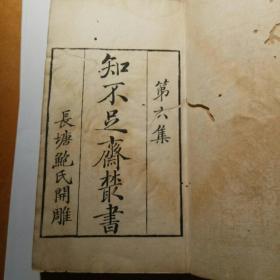 第六集
知不足齋叢書
長塘鮑氏開雕